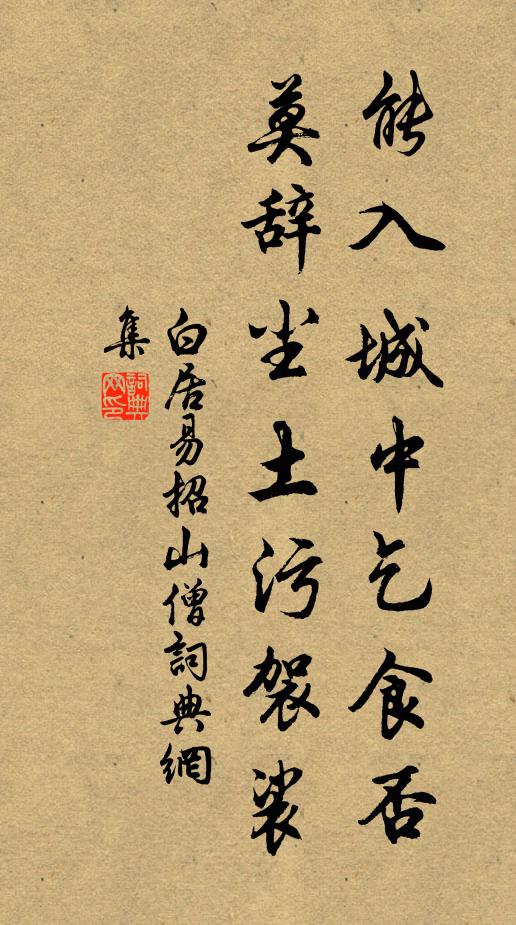 能入城中乞食否
莫辞尘土污袈裟
白居易招山僧詞典網
集
詞典網印